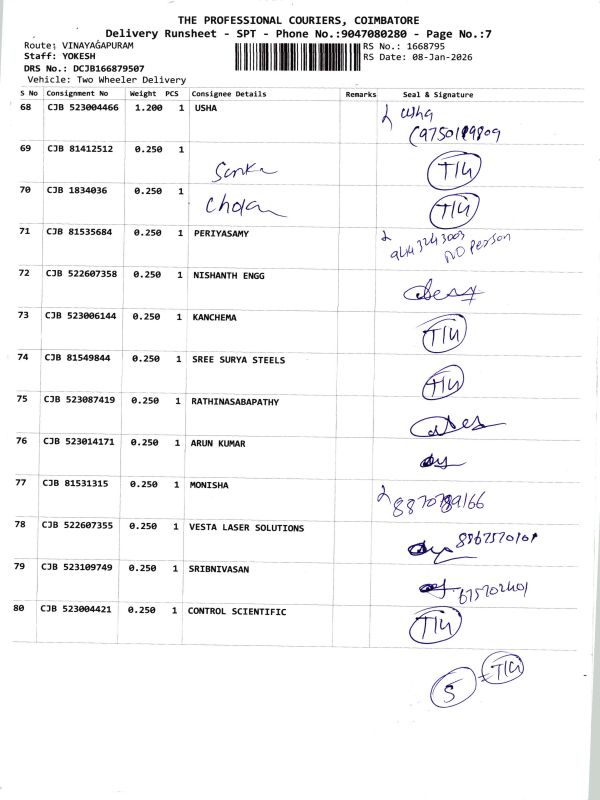 THE PROFESSIONAL COURIERS, COIMBATORE
Delivery Runsheet - SPT - Phone No.:9047080280 - Page No.:7
Route: VINAYAGAPURAM
RS No.: 1668795
Staff: YOKESH
RS Date: 08-Jan-2026
DRS No.: DCJB166879507
Vehicle: Two Wheeler Delivery
S No Consignment No Weight PCS Consignee Details Remarks Seal & Signature
68 CJB 523004466 1.200 1 USHA Usha
69 CJB 81412512 0.250 1 T/4
70 CJB 1834036 0.250 1 T/4
71 CJB 81535684 0.250 1 PERIYASAMY
NO Person
72 CJB 522607358 0.250 1 NISHANTH ENGG
73 CJB 523006144 0.250 1 KANCHEMA T/4
74 CJB 81549844 0.250 1 SREE SURYA STEELS T/4
75 CJB 523087419 0.250 1 RATHINASABAPATHY
76 CJB 523014171 0.250 1 ARUN KUMAR
77 CJB 81531315 0.250 1 MONISHA
78 CJB 522607355 0.250 1 VESTA LASER SOLUTIONS
79 CJB 523109749 0.250 1 SRIBNIVASAN
80 CJB 523004421 0.250 1 CONTROL SCIENTIFIC T/4
5 = T/4